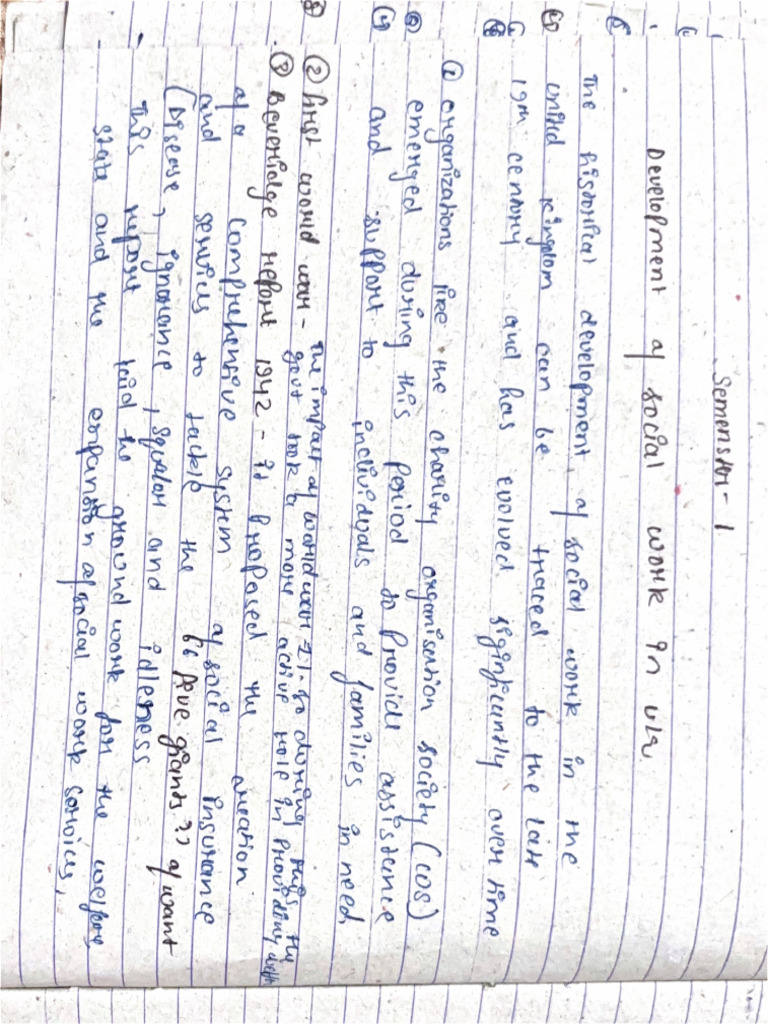 Semenster-1
Development of social work in UK
The historical development of social work in the
united kingdom can be traced to the late
19th century and has evolved significantly over time
① organizations like the charity organisation society (cos)
emerged during this period to provide assistence
and support to individuals and families in need
② first world war- The impact of world war I- so during this the
govt took a more active role in providing
③ Beveridge report 1942 - it proposed the creation
of a comprehensive system of social insurance
and services to tackle the "five giants" of want
(Disease, ignorance, squalor and idleness
This report laid the ground work for the welfare
state and the expansion of social work services,